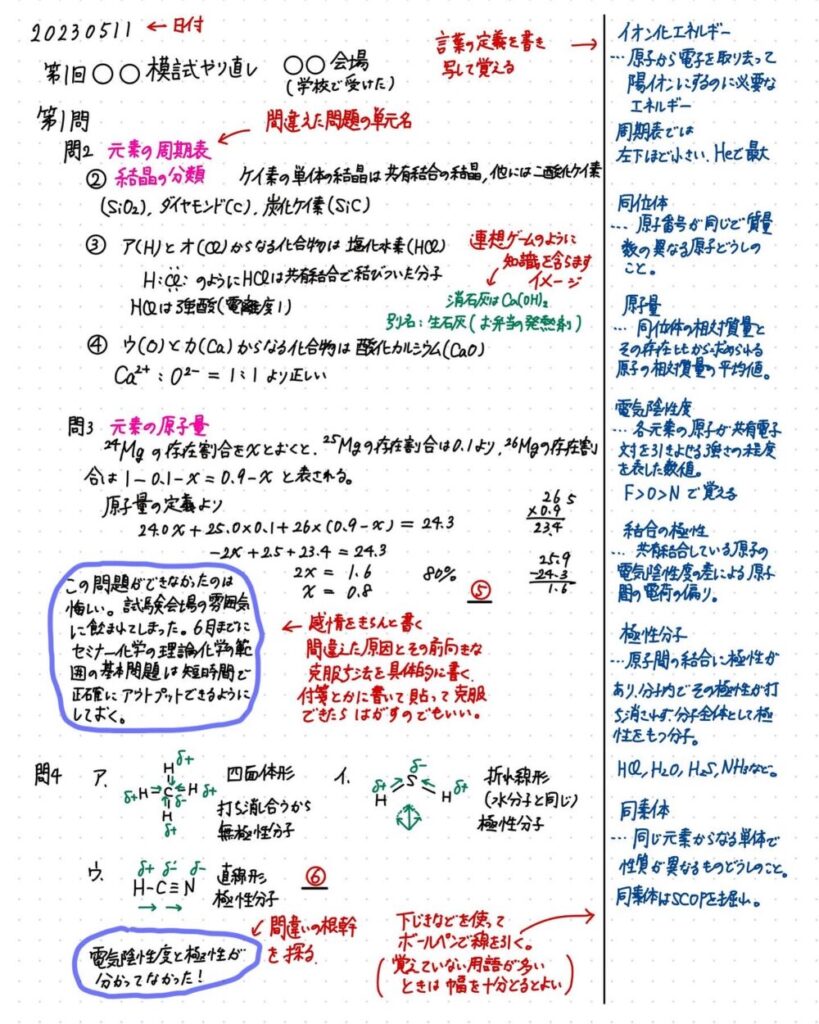 20230511 ← 日付
第1回 ○○ 模試やり直し ○○会場
(学校で受けた)
言葉の定義を書き
写して覚える
第1問
間違えた問題の単元名
問2 元素の周期表
結晶の分類
② ケイ素の単体の結晶は共有結合の結晶,他には二酸化ケイ素
(SiO2), ダイヤモンド(C), 炭化ケイ素(SiC)
③ ア(H)とオ(Cl)からなる化合物は塩化水素(HCl)
H:Cl: のようにHClは共有結合で結びついた分子
HClは強酸(電離度1)
連想ゲームのように
知識を含らます
イメージ
消石灰はCa(OH)2
別名:生石灰(お弁当の発熱剤)
④ ウ(O)とカ(Ca)からなる化合物は酸化カルシウム(CaO)
Ca2+ : O2- = 1:1より正しい
問3 元素の原子量
24Mgの存在割合をxとおくと,25Mgの存在割合は0.1より,26Mgの存在割
合は1-0.1-x=0.9-xと表される。
原子量の定義より
24.0x+25.0×0.1+26×(0.9-x)=24.3
-2x+2.5+23.4=24.3
2x = 1.6 80%
x = 0.8 ⑤
26 5
×0.9
23.4
25.9
-24.3
1.6
この問題ができなかったのは
悔しい。試験会場の雰囲気
に飲まれてしまった。6月までに
セミナー化学の理論化学の範
囲の基本問題は短時間で
正確にアウトプットできるように
しておく。
← 感情をきちんと書く
間違えた原因とその前向きな
克服方法を具体的に書く
付箋とかに書いて貼って克服
できたらはがすのでもいい。
問4 ア.
δ+
H
δ+ H C H δ+
δ-
H
δ+
四面体形
打ち消し合うから
無極性分子
イ.
δ-
δ+ S
H H δ+
折れ線形
(水分子と同じ)
極性分子
ウ.
δ+ δ- δ-
H-C≡N
直線形
極性分子
⑥
電気陰性度と極性が
分かってなかった!
← 間違いの根幹
を探る
下じきなどを使って
ボールペンで線を引く。
(覚えていない用語が多い
ときは幅を十分とるとよい)
イオン化エネルギー
… 原子から電子を取り去って
陽イオンにするのに必要な
エネルギー
周期表では
左下ほど小さい. Heで最大
同位体
… 原子番号が同じで質量
数の異なる原子どうしの
こと。
原子量
… 同位体の相対質量と
その存在比から求められる
原子の相対質量の平均値。
電気陰性度
… 各元素の原子が共有電子
対を引きよせる強さの程度
を表した数値。
F>O>Nで覚える
結合の極性
… 共有結合している原子の
電気陰性度の差による原子
間の電荷の偏り。
極性分子
… 原子間の結合に極性が
あり,分子内でその極性が打
ち消されず,分子全体として極
性をもつ分子。
HCl, H2O, H2S, NH3など。
同素体
… 同じ元素からなる単体で
性質が異なるものどうしのこと。
同素体はSCOPを掘れ。